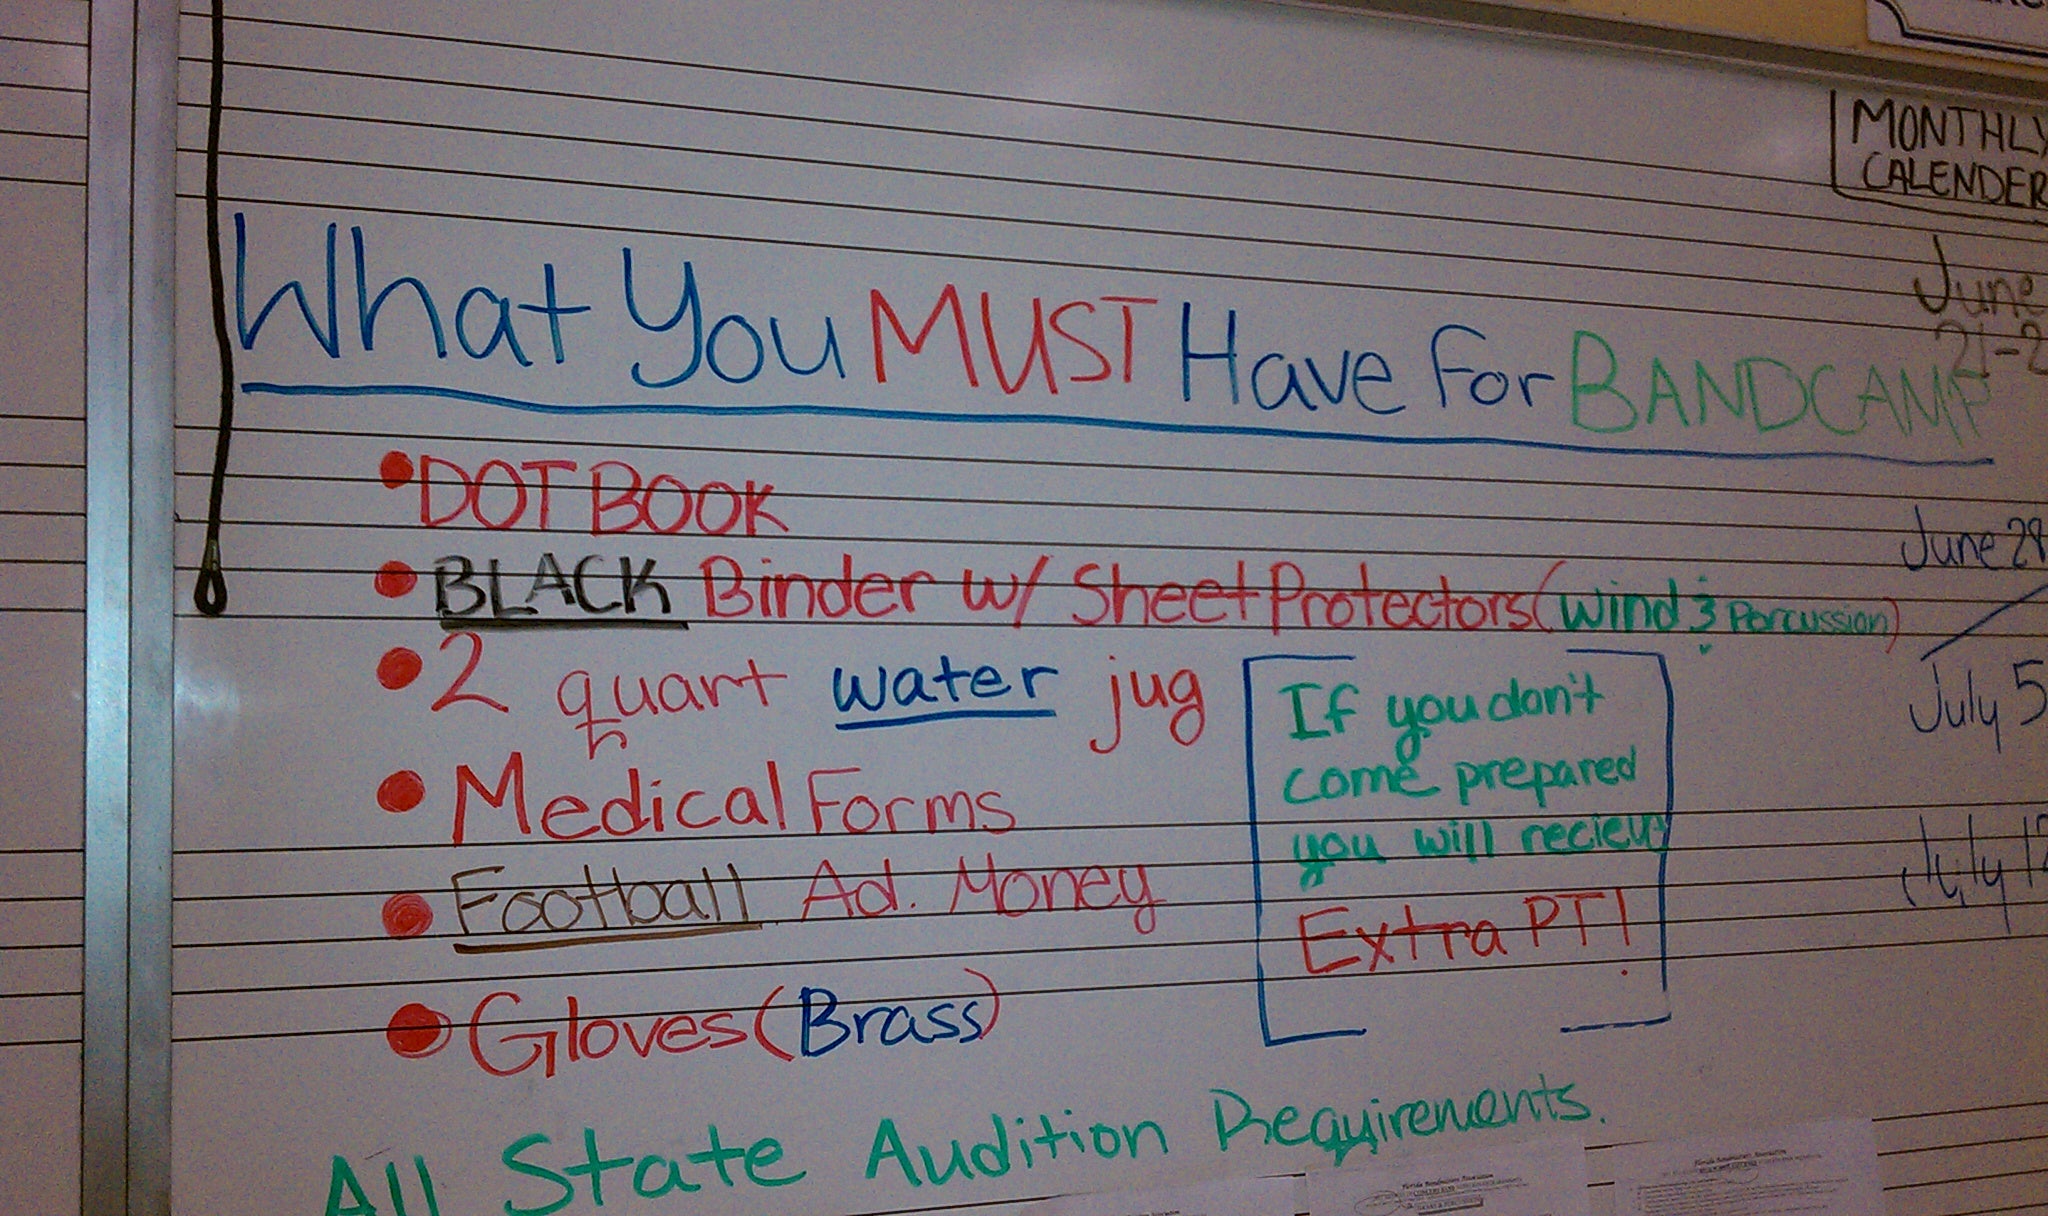 MONTHLY
CALENDER
June
21-2
What You MUST Have For BANDCAMP
• DOT BOOK
• BLACK Binder w/ Sheet Protectors (Wind & Percussion)
• 2 quart water jug
• Medical Forms
• Football Ad. Money
• Gloves (Brass)
If you don't
come prepared
you will recieve
Extra PT!
June 28
July 5
July 12
All State Audition Requirements.